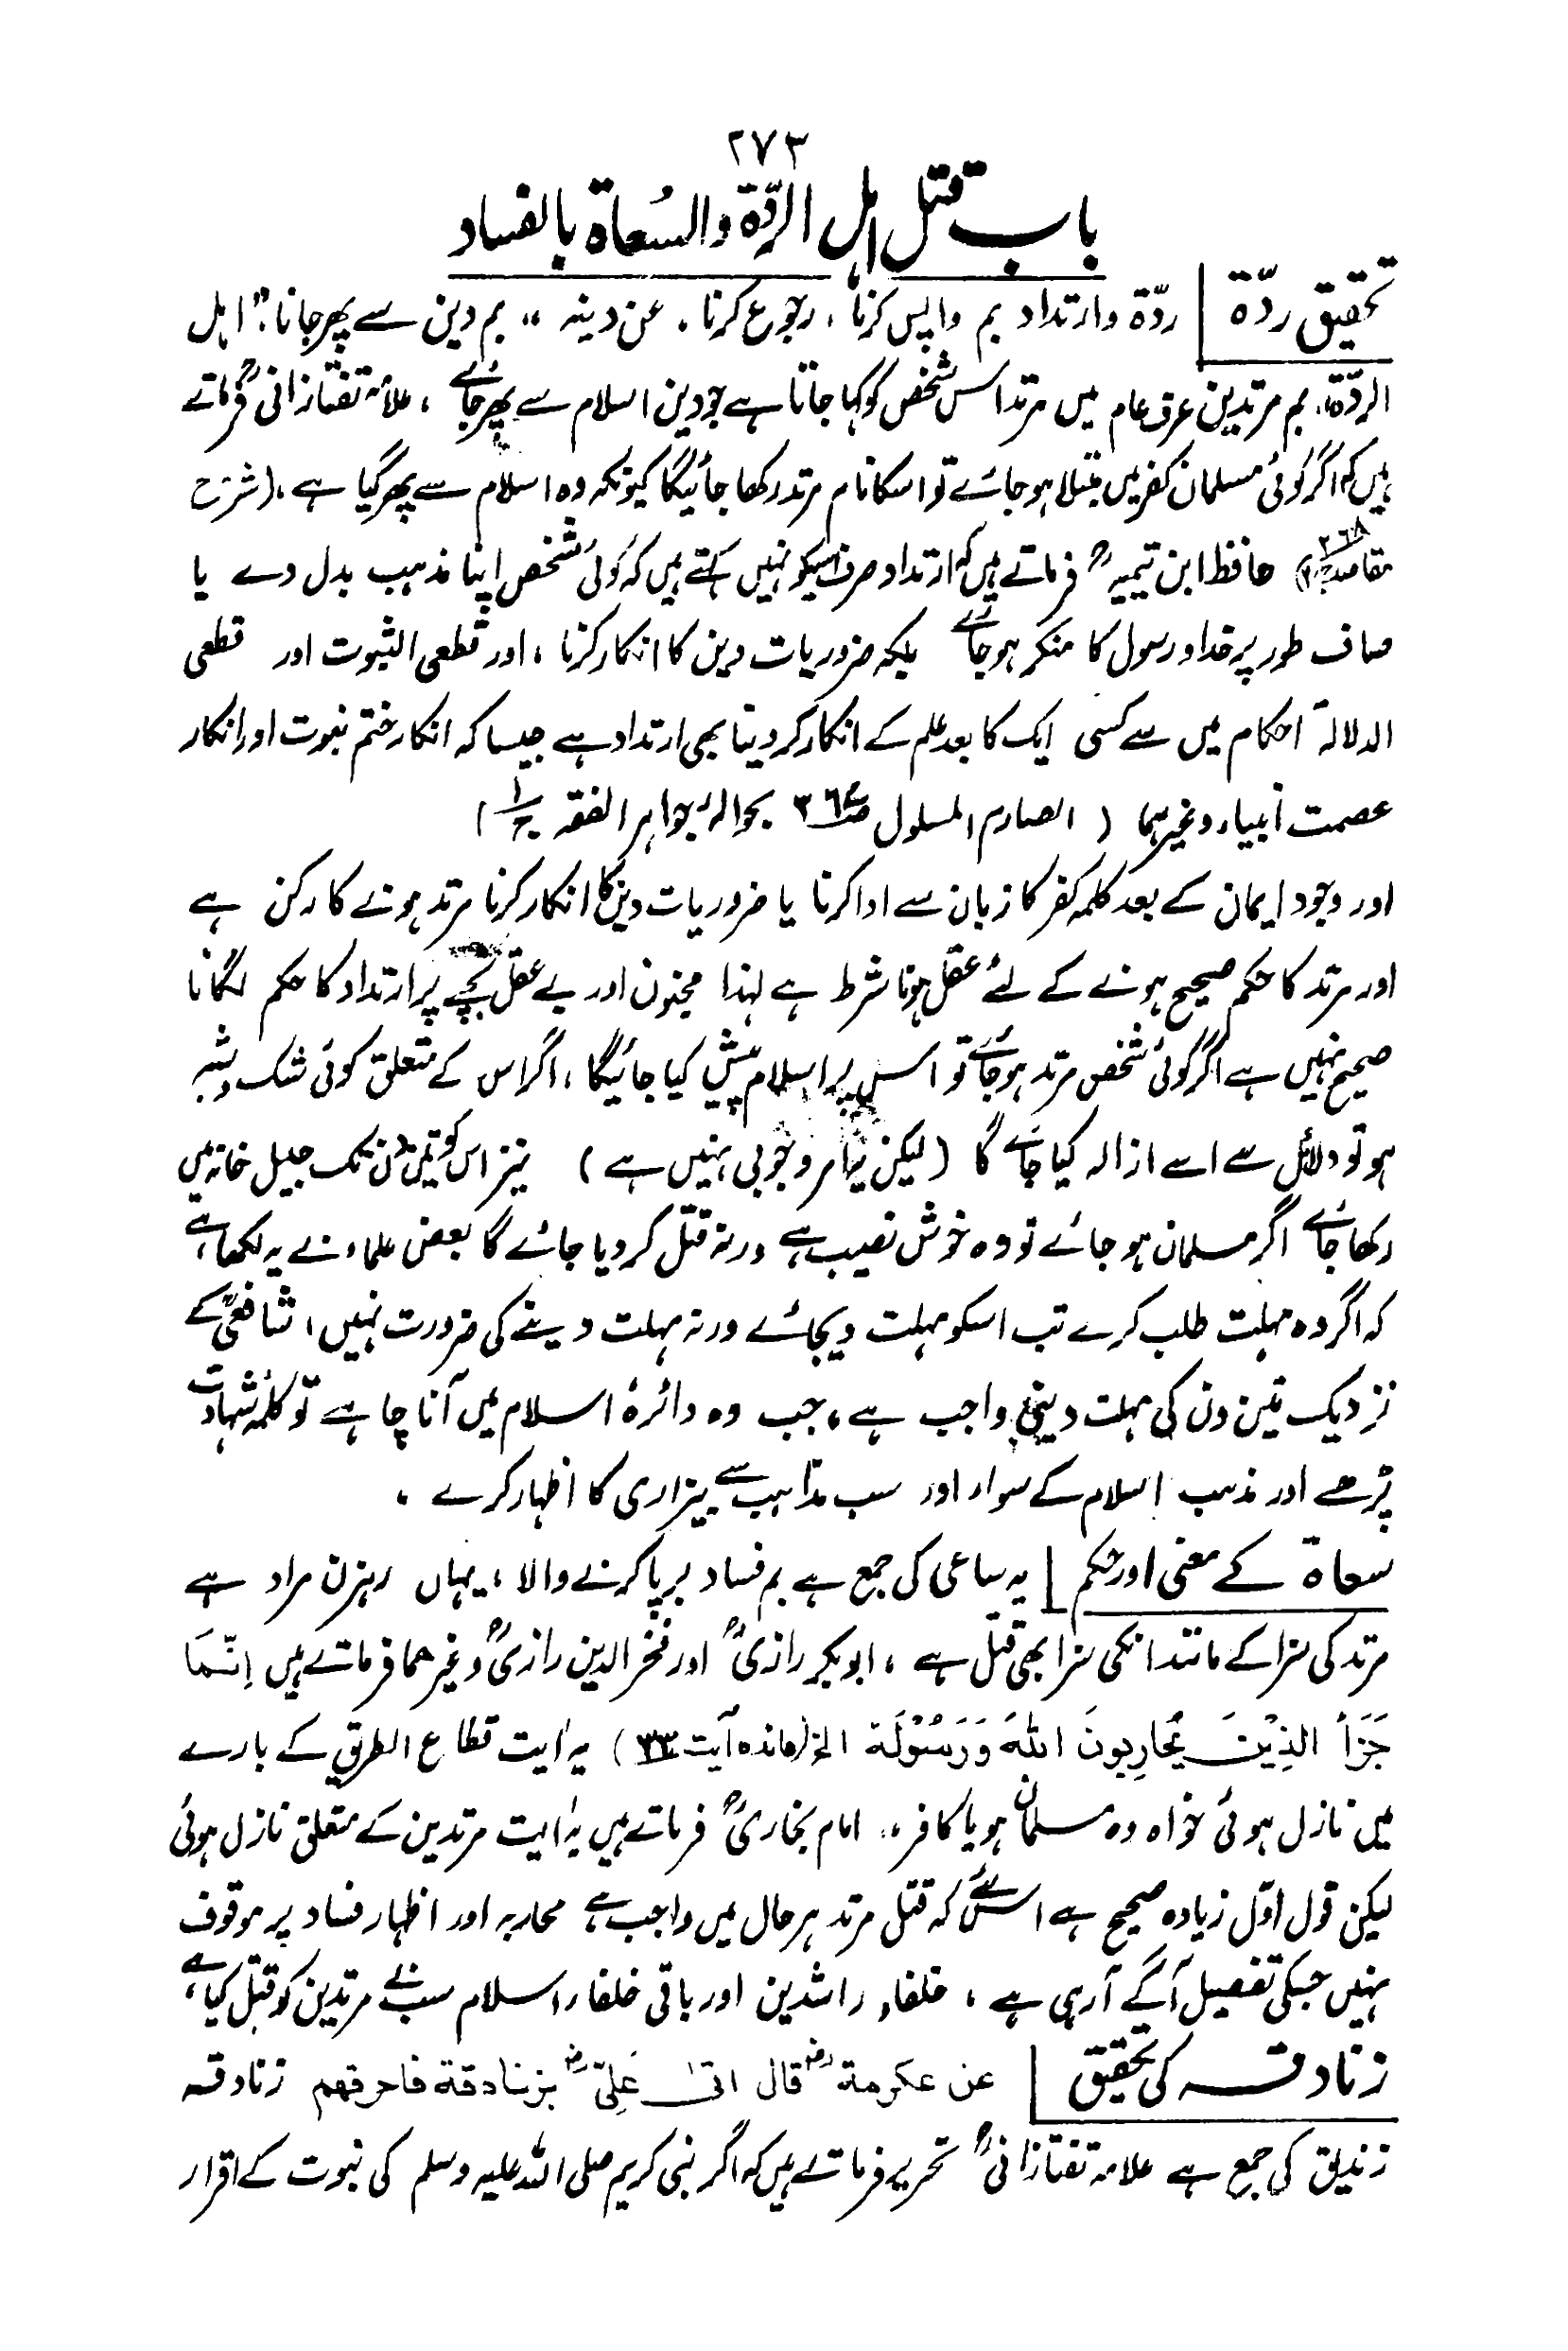 ۲۷۳
باب قتل اہل الردّۃ والسُعاۃ بالفساد
تحقیق ردّۃ | ردّۃ وارتداد بم واپس کرنا، رجوع کرنا، عن دینہ ،، بم دین سے پھر جانا،" اہل
الردّۃ،، بم مرتدین عرف عام میں مرتد اس شخص کو کہا جاتا ہے جو دین اسلام سے پھر جائے ، علامہ تفتازانیؒ فرماتے
ہیں کہ اگر کوئی مسلمان کفر میں مبتلا ہو جائے تو اسکا نام مرتد رکھا جائیگا کیونکہ وہ اسلام سے پھر گیا ہے ، (شرح
مقاصد) حافظ ابن تیمیہؒ فرماتے ہیں کہ ارتداد صرف اسیکو نہیں کہتے ہیں کہ کوئی شخص اپنا مذہب بدل دے یا
صاف طور پر خدا و رسول کا منکر ہو جائے بلکہ ضروریات دین کا انکار کرنا ، اور قطعی الثبوت اور قطعی
الدلالۃ احکام میں سے کسی ایک کا بعد علم کے انکار کر دینا بھی ارتداد ہے جیسا کہ انکار ختم نبوت اور انکار
عصمت انبیاء وغیرہما ( الصارم المسلول ص۳۶۷ بحوالۂ جواہر الفقہ ج۱ )
اور وجود ایمان کے بعد کلمہ کفر کا زبان سے ادا کرنا یا ضروریات دین کا انکار کرنا مرتد ہونے کا رکن ہے
اور مرتد کا حکم صحیح ہونے کے لئے عقل ہونا شرط ہے لہذا مجنون اور بے عقل بچے پر ارتداد کا حکم لگانا
صحیح نہیں ہے اگر کوئی شخص مرتد ہو جائے تو اس پر اسلام پیش کیا جائیگا ، اگر اس کے متعلق کوئی شک و شبہ
ہو تو دلائل سے اسے ازالہ کیا جائے گا (لیکن یہ امر وجوبی نہیں ہے) نیز اس کو تین دن تک جیل خانہ میں
رکھا جائے اگر مسلمان ہو جائے تو وہ خوش نصیب ہے ورنہ قتل کر دیا جائے گا بعض علماء نے یہ لکھا ہے
کہ اگر وہ مہلت طلب کرے تب اسکو مہلت دیجائے ورنہ مہلت دینے کی ضرورت نہیں ، شافعیؒ کے
نزدیک تین دن کی مہلت دینی واجب ہے ، جب وہ دائرۂ اسلام میں آنا چاہے تو کلمۂ شہادت
پڑھے اور مذہب اسلام کے سوا، اور سب مذاہب سے بیزاری کا اظہار کرے ۔
سعاۃ کے معنی اور حکم | یہ ساعی کی جمع ہے بم فساد برپا کرنے والا ، یہاں رہزن مراد ہے
مرتد کی سزا کے مانند انکی سزا بھی قتل ہے ، ابوبکر رازیؒ اور فخر الدین رازیؒ وغیرھما فرماتے ہیں اِنّمَا
جَزَاُ الذِیْنَ یُحَارِبونَ اللہَ وَرَسُوْلَہ الخ (مائدہ آیت ۳۳) یہ ایت قطاع الطریق کے بارے
میں نازل ہوئی خواہ وہ مسلمان ہو یا کافر ،، امام بخاریؒ فرماتے ہیں یہ ایت مرتدین کے متعلق نازل ہوئی
لیکن قول اوّل زیادہ صحیح ہے اسلئے کہ قتل مرتد ہر حال میں واجب ہے محاربہ اور اظہار فساد پر موقوف
نہیں جسکی تفصیل آگے آرہی ہے ، خلفاء راشدین اور باقی خلفاء اسلام سب نے مرتدین کو قتل کیا ہے ،
زنادقہ کی تحقیق | عن عکرمۃؓ قال اتیٰ عَلِیّؓ بزنادقۃ فاحرقھم زنادقہ
زندیق کی جمع ہے علامہ تفتازانیؒ تحریر فرماتے ہیں کہ اگر نبی کریم صلی اللہ علیہ وسلم کی نبوت کے اقرار